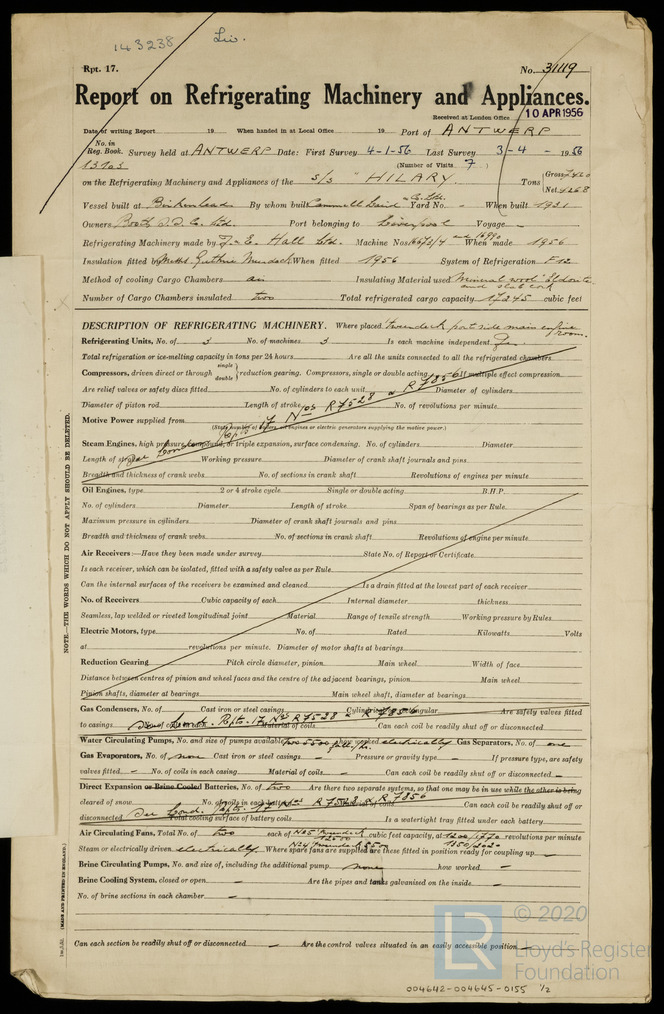 143238 Liv.
Rpt. 17. No. 31119
Report on Refrigerating Machinery and Appliances.
Received at London Office 10 APR 1956
Date of writing Report 19 When handed in at Local Office 19 Port of ANTWERP
No. in Reg. Book. Survey held at ANTWERP Date: First Survey 4-1-56 Last Survey 3-4-1956
(Number of Visits 7)
on the Refrigerating Machinery and Appliances of the S/S "HILARY. Tons Gross 7420 Net 4268
Vessel built at Birkenhead By whom built Cammell Laird & Co. Ltd. Yard No. - When built 1931
Owners Booth S.S. Co. Ltd. Port belonging to Liverpool Voyage
Refrigerating Machinery made by J. & E. Hall Ltd. Machine Nos. 16673/4 and 16990 When made 1956
Insulation fitted by Messrs. Guthrie Murdoch When fitted 1956 System of Refrigeration F12
Method of cooling Cargo Chambers air Insulating Material used Mineral wool and slab cork
Number of Cargo Chambers insulated two Total refrigerated cargo capacity 17245 cubic feet
DESCRIPTION OF REFRIGERATING MACHINERY. Where placed tweendeck port side main engine room.
Refrigerating Units, No. of 3 No. of machines 3 Is each machine independent Yes.
Total refrigeration or ice-melting capacity in tons per 24 hours Are all the units connected to all the refrigerated chambers
Compressors, driven direct or through single double reduction gearing. Compressors, single or double acting If multiple effect compression
Are relief valves or safety discs fitted No. of cylinders to each unit Diameter of cylinders
Diameter of piston rod Length of stroke No. of revolutions per minute
See Cond. Rpts. 17 Nos R7528 & R7856
Motive Power supplied from
(State number of boilers, oil engines or electric generators supplying the motive power.)
Steam Engines, high pressure, compound, or triple expansion, surface condensing. No. of cylinders Diameter
Length of stroke Working pressure Diameter of crank shaft journals and pins
Breadth and thickness of crank webs No. of sections in crank shaft Revolutions of engines per minute
Oil Engines, type 2 or 4 stroke cycle Single or double acting B.H.P.
No. of cylinders Diameter Length of stroke Span of bearings as per Rule
Maximum pressure in cylinders Diameter of crank shaft journals and pins
Breadth and thickness of crank webs No. of sections in crank shaft Revolutions of engine per minute
Air Receivers:—Have they been made under survey State No. of Report or Certificate
Is each receiver, which can be isolated, fitted with a safety valve as per Rule
Can the internal surfaces of the receivers be examined and cleaned Is a drain fitted at the lowest part of each receiver
No. of Receivers Cubic capacity of each Internal diameter thickness
Seamless, lap welded or riveted longitudinal joint Material Range of tensile strength Working pressure by Rules
Electric Motors, type No. of Rated Kilowatts Volts
at revolutions per minute. Diameter of motor shafts at bearings
Reduction Gearing Pitch circle diameter, pinion Main wheel Width of face
Distance between centres of pinion and wheel faces and the centre of the adjacent bearings, pinion Main wheel
Pinion shafts, diameter at bearings Main wheel shaft, diameter at bearings
Gas Condensers, No. of Cast iron or steel casings Cylindrical or rectangular Are safety valves fitted
to casings See Cond. Rpts. 17 Nos R7528 & R7856 Material of coils Can each coil be readily shut off or disconnected
Water Circulating Pumps, No. and size of pumps available two 5500 galls/hr. how worked electrically Gas Separators, No. of one
Gas Evaporators, No. of none Cast iron or steel casings - Pressure or gravity type - If pressure type, are safety
valves fitted - No. of coils in each casing Material of coils - Can each coil be readily shut off or disconnected -
Direct Expansion or Brine Cooled Batteries, No. of two Are there two separate systems, so that one may be in use while the other is being
cleared of snow No. of coils in each battery Can each coil be readily shut off or
disconnected See Cond. Rpts. 17 Nos R7528 & R7856 Total cooling surface of battery coils Is a watertight tray fitted under each battery
Air Circulating Fans, Total No. of two each of No5 Tweendeck 12500 No4 Tweendeck 8500 cubic feet capacity, at 1200/1770 1350/2020 revolutions per minute
Steam or electrically driven electrically Where spare fans are supplied are these fitted in position ready for coupling up -
Brine Circulating Pumps, No. and size of, including the additional pump none how worked -
Brine Cooling System, closed or open - Are the pipes and tanks galvanised on the inside -
No. of brine sections in each chamber -
Can each section be readily shut off or disconnected - Are the control valves situated in an easily accessible position -
NOTE.—THE WORDS WHICH DO NOT APPLY SHOULD BE DELETED.
(MADE AND PRINTED IN ENGLAND.)
LR © 2020
Lloyd's Register
Foundation
004642-004645-0155 1/2